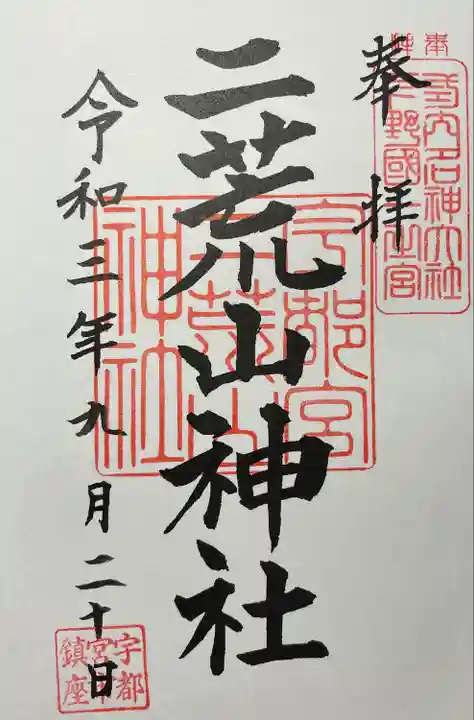 式内名神大社
下野國一之宮
奉拝
二荒山神社
宇都宮
二荒山
神社
令和三年九月二十日
宇都
宮市
鎮座